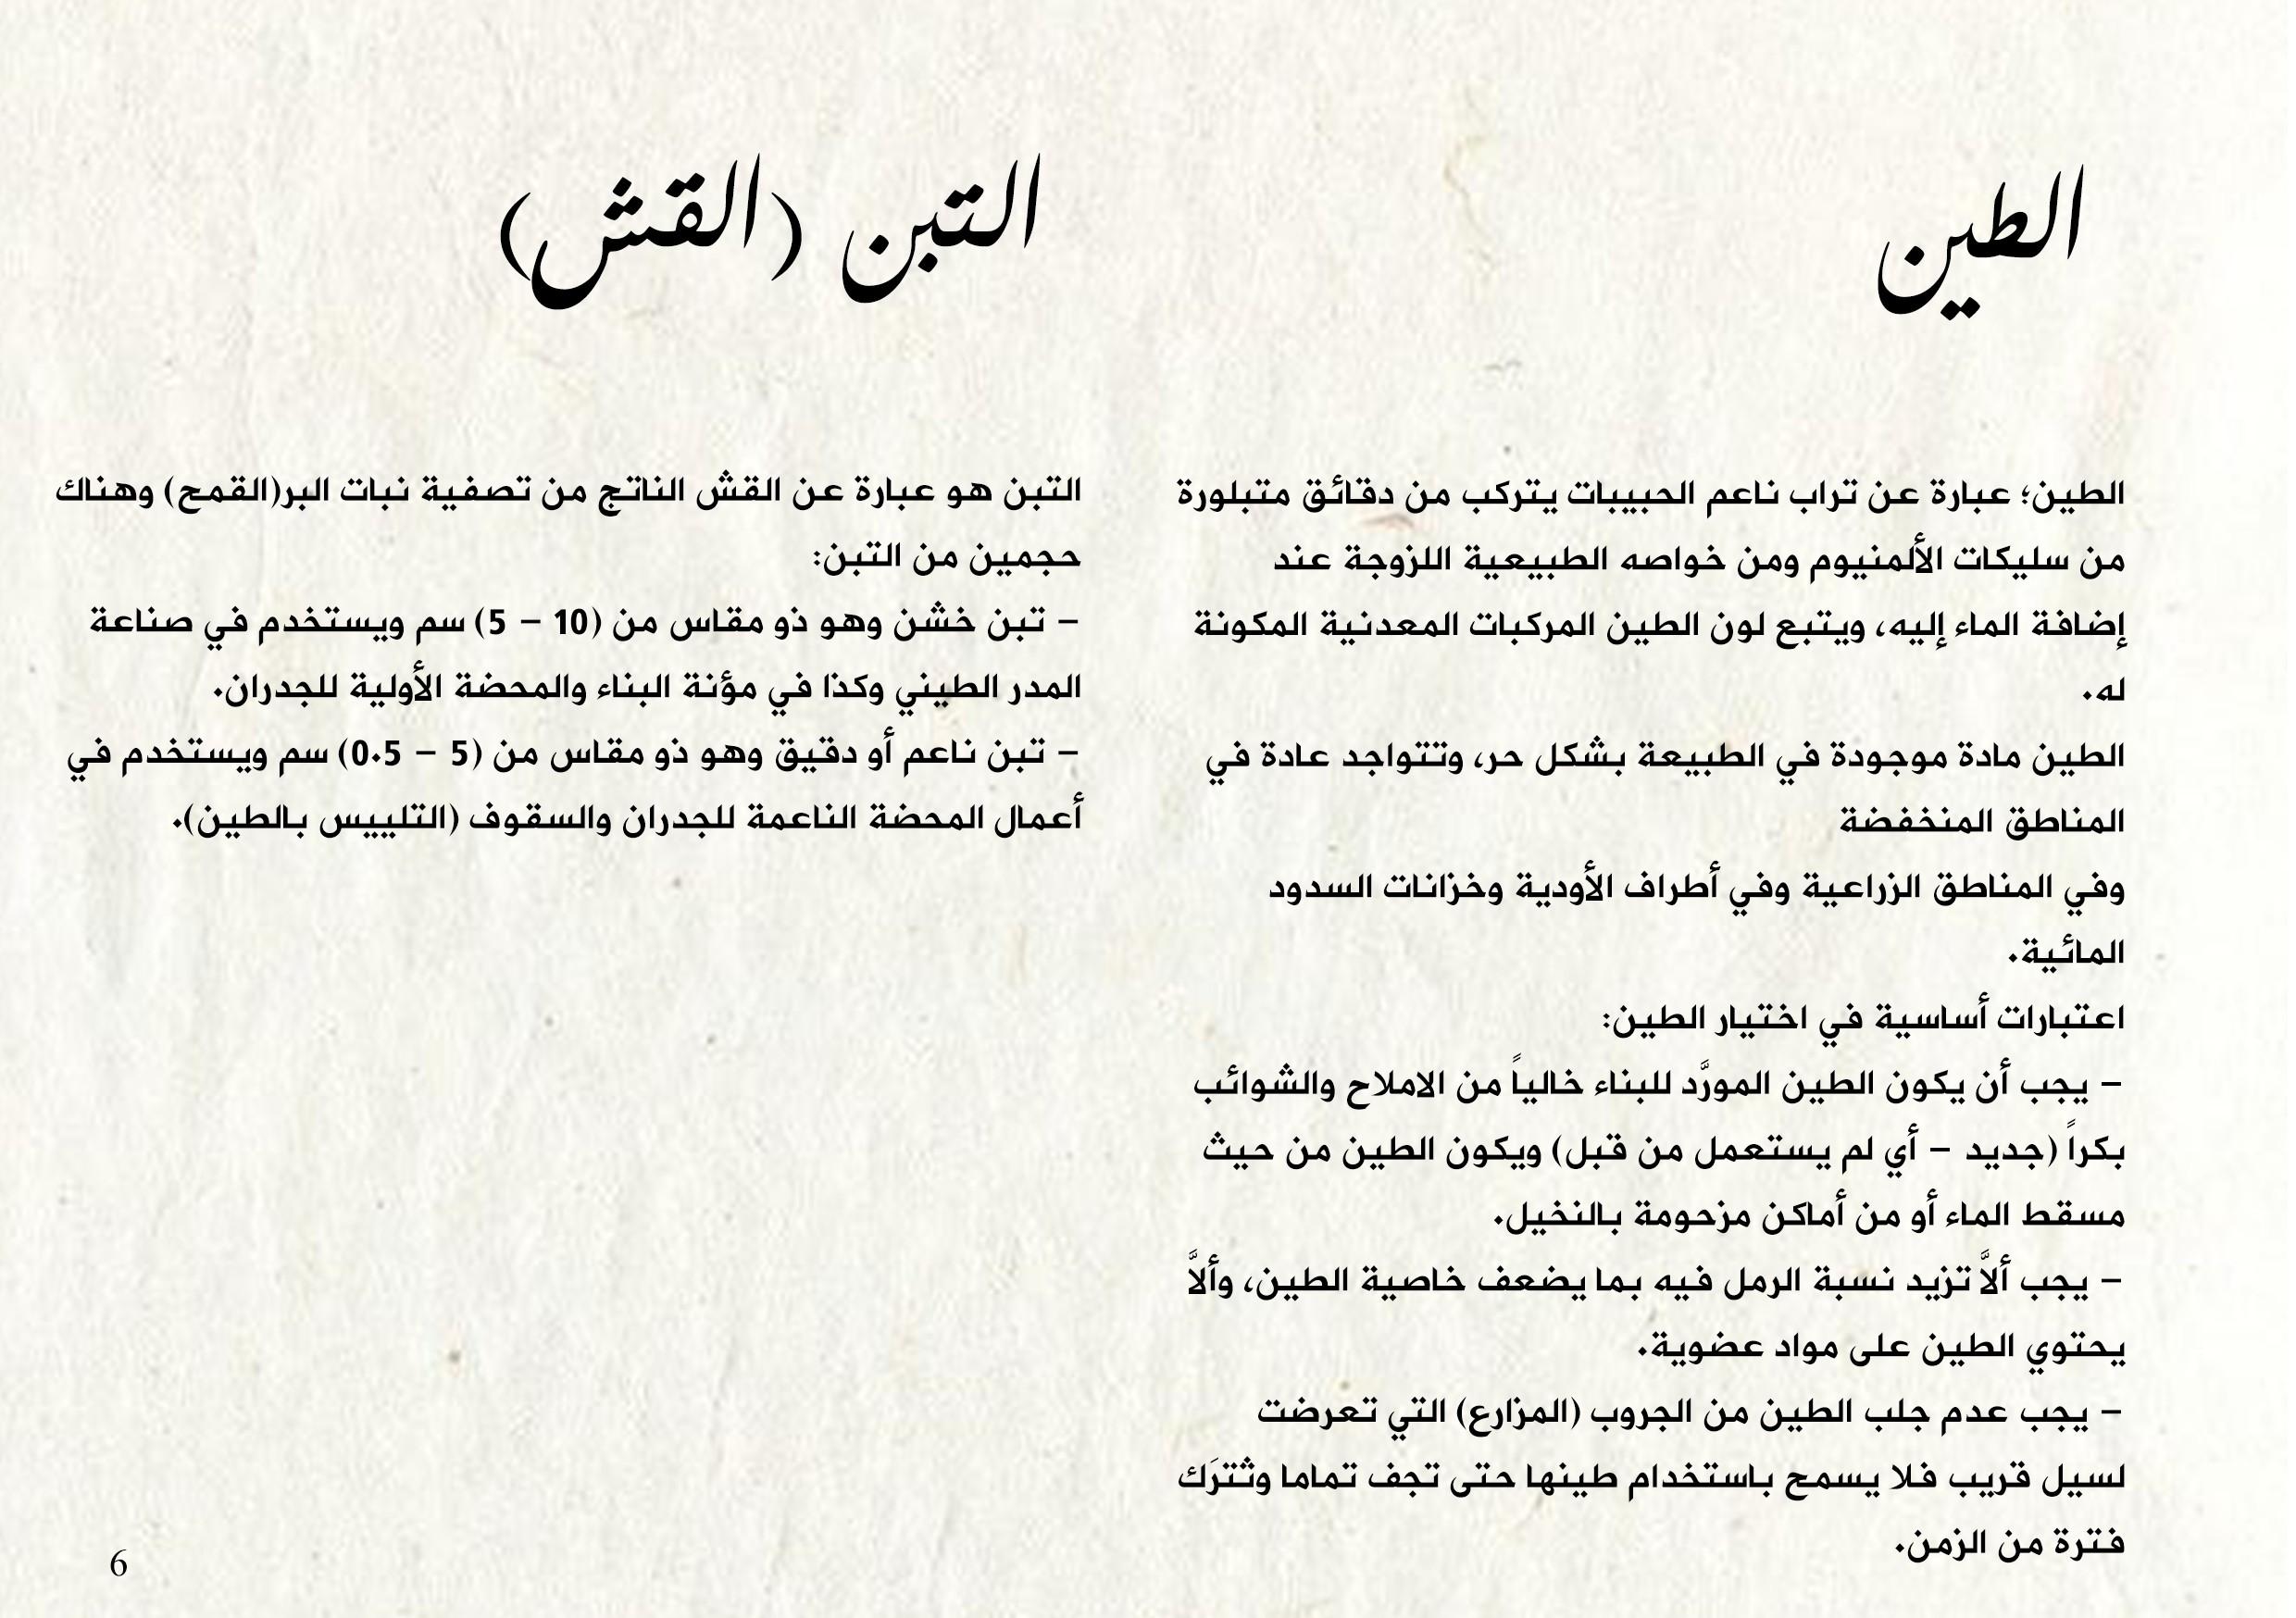 الطين
الطين؛ عبارة عن تراب ناعم الحبيبات يتركب من دقائق متبلورة
من سليكات الألمنيوم ومن خواصه الطبيعية اللزوجة عند
إضافة الماء إليه، ويتبع لون الطين المركبات المعدنية المكونة
له.
الطين مادة موجودة في الطبيعة بشكل حر، وتتواجد عادة في
المناطق المنخفضة
وفي المناطق الزراعية وفي أطراف الأودية وخزانات السدود
المائية.
اعتبارات أساسية في اختيار الطين:
– يجب أن يكون الطين المورَّد للبناء خالياً من الاملاح والشوائب
بكراً (جديد – أي لم يستعمل من قبل) ويكون الطين من حيث
مسقط الماء أو من أماكن مزحومة بالنخيل.
– يجب ألاَّ تزيد نسبة الرمل فيه بما يضعف خاصية الطين، وألاَّ
يحتوي الطين على مواد عضوية.
– يجب عدم جلب الطين من الجروب (المزارع) التي تعرضت
لسيل قريب فلا يسمح باستخدام طينها حتى تجف تماما وثترَك
فترة من الزمن.
التبن (القش)
التبن هو عبارة عن القش الناتج من تصفية نبات البر(القمح) وهناك
حجمين من التبن:
– تبن خشن وهو ذو مقاس من (10 – 5) سم ويستخدم في صناعة
المدر الطيني وكذا في مؤنة البناء والمحضة الأولية للجدران.
– تبن ناعم أو دقيق وهو ذو مقاس من (5 – 0.5) سم ويستخدم في
أعمال المحضة الناعمة للجدران والسقوف (التلييس بالطين).
6